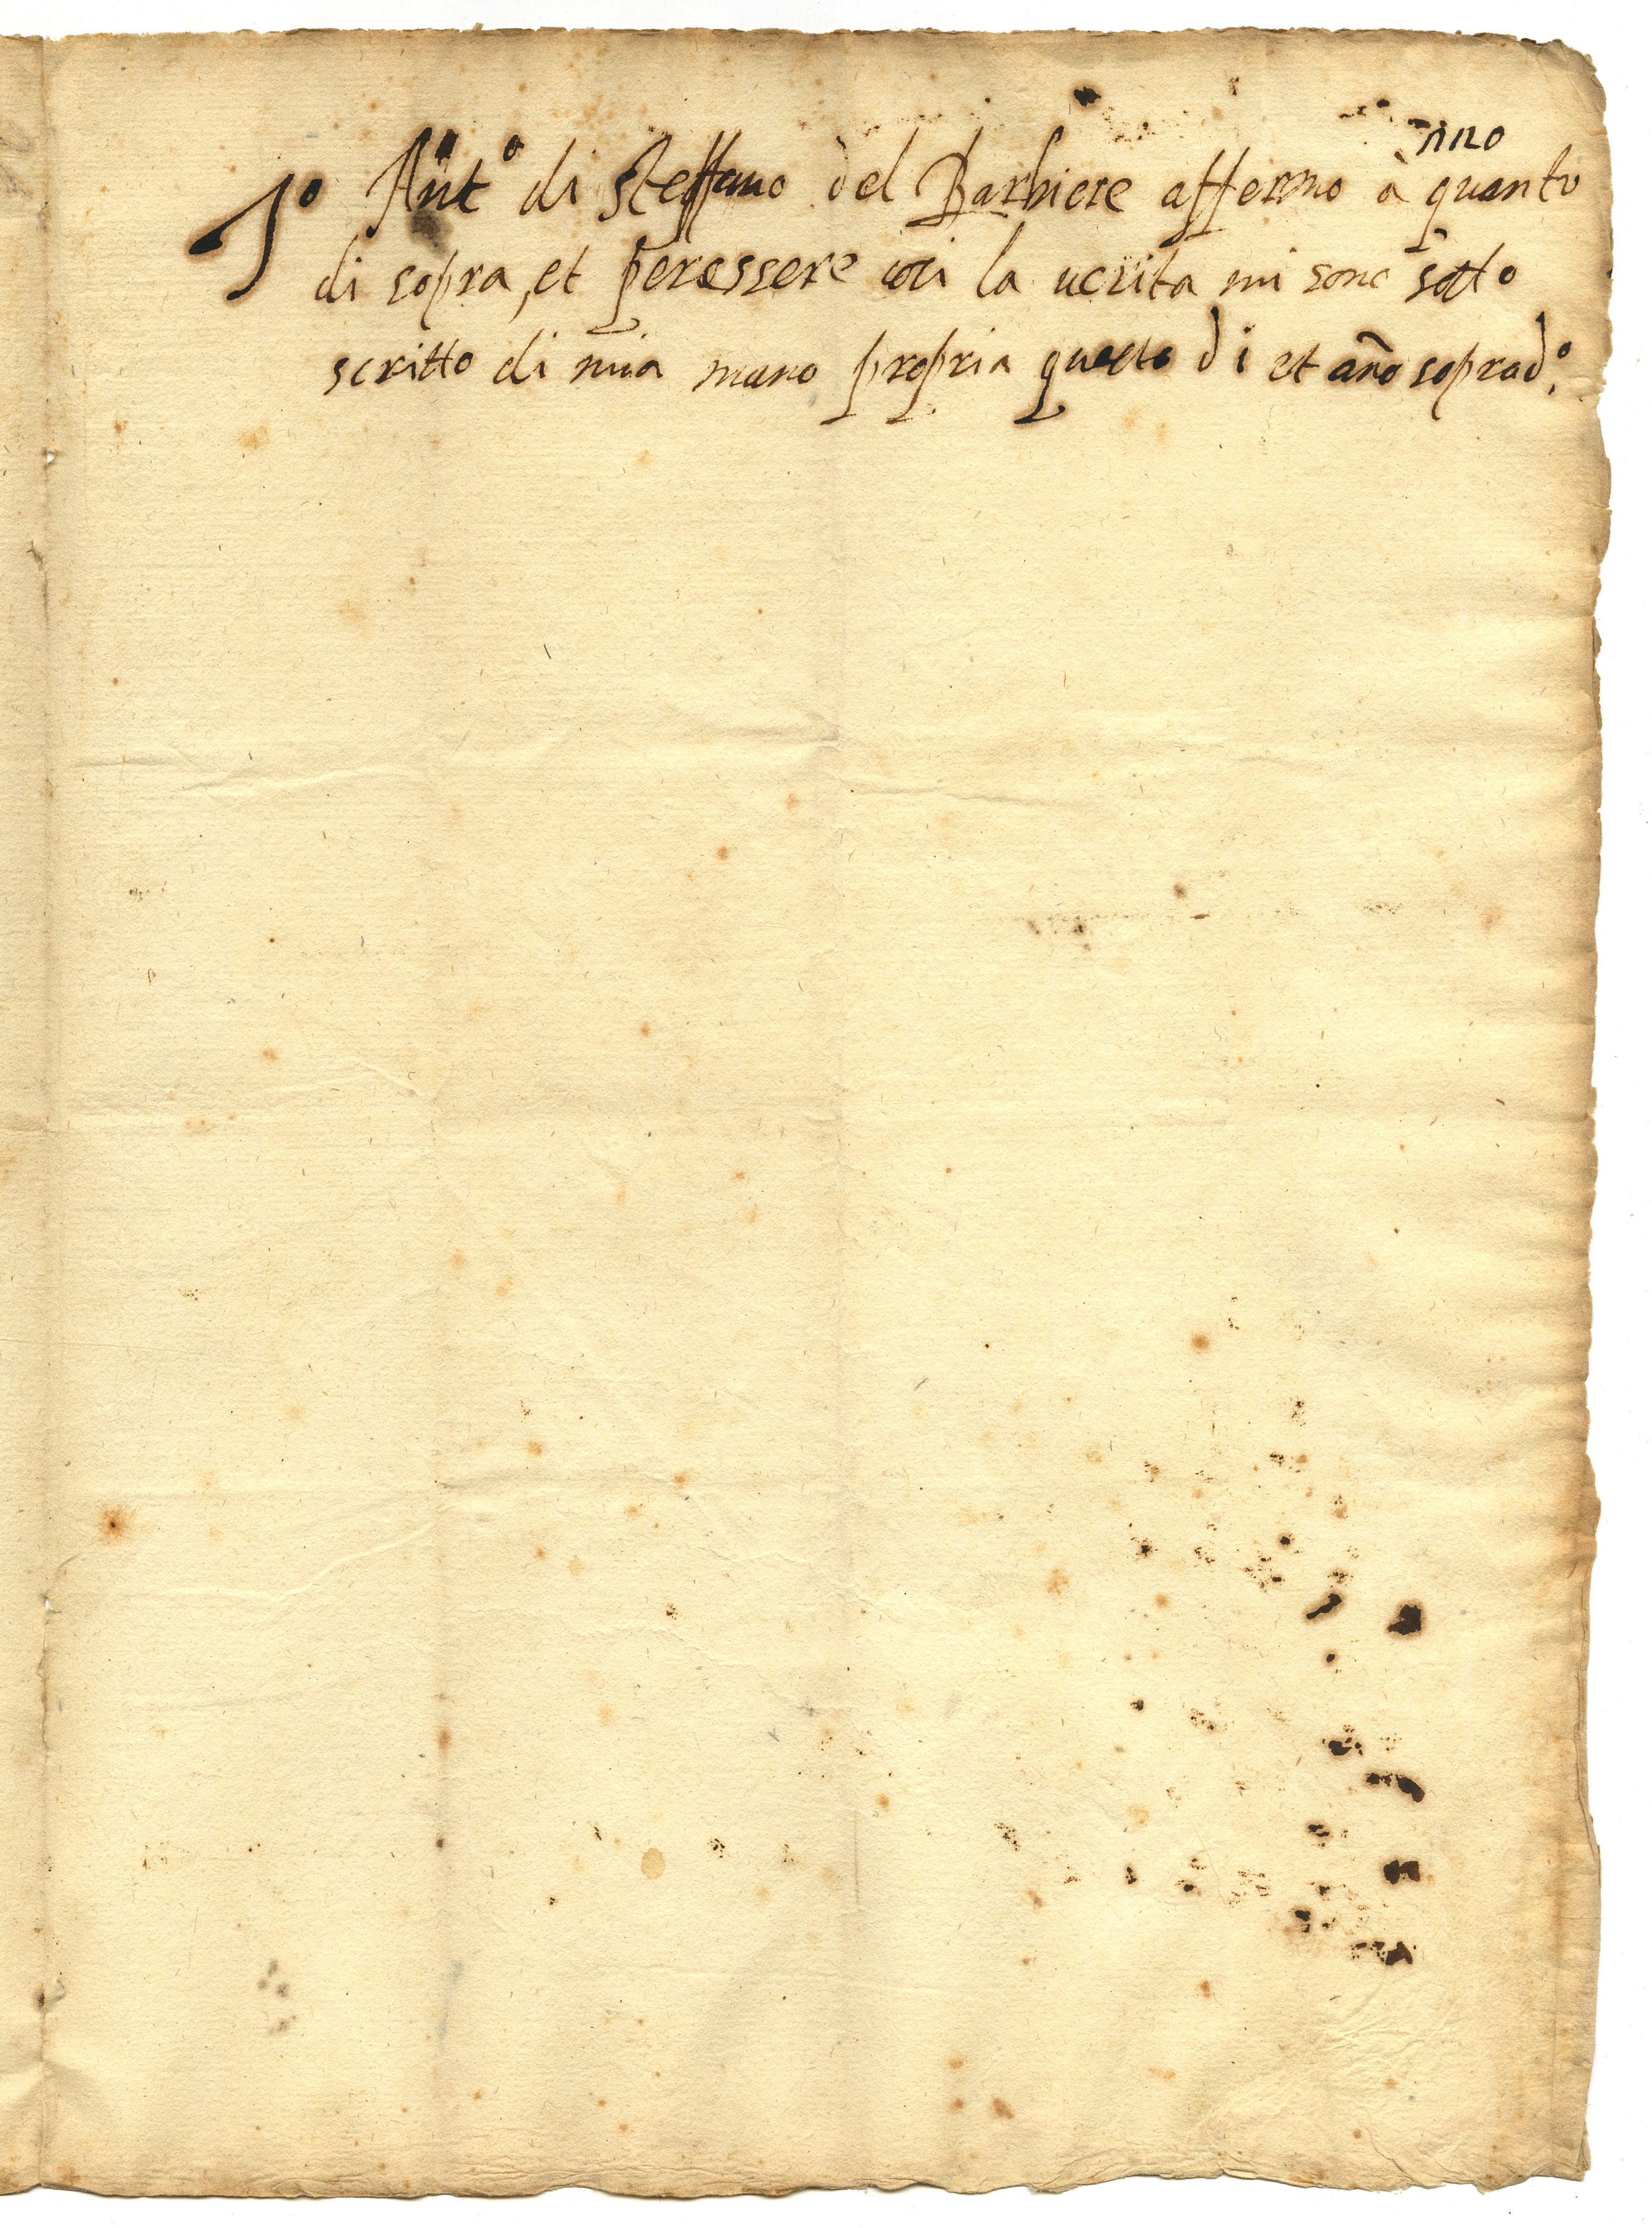 nno
Io Ant.o di Steffano del Barbiere affermo à quanto
di sopra, et per essere cosi la uerita mi sono sotto
scritto di mia mano propria questo di et año soprad.o